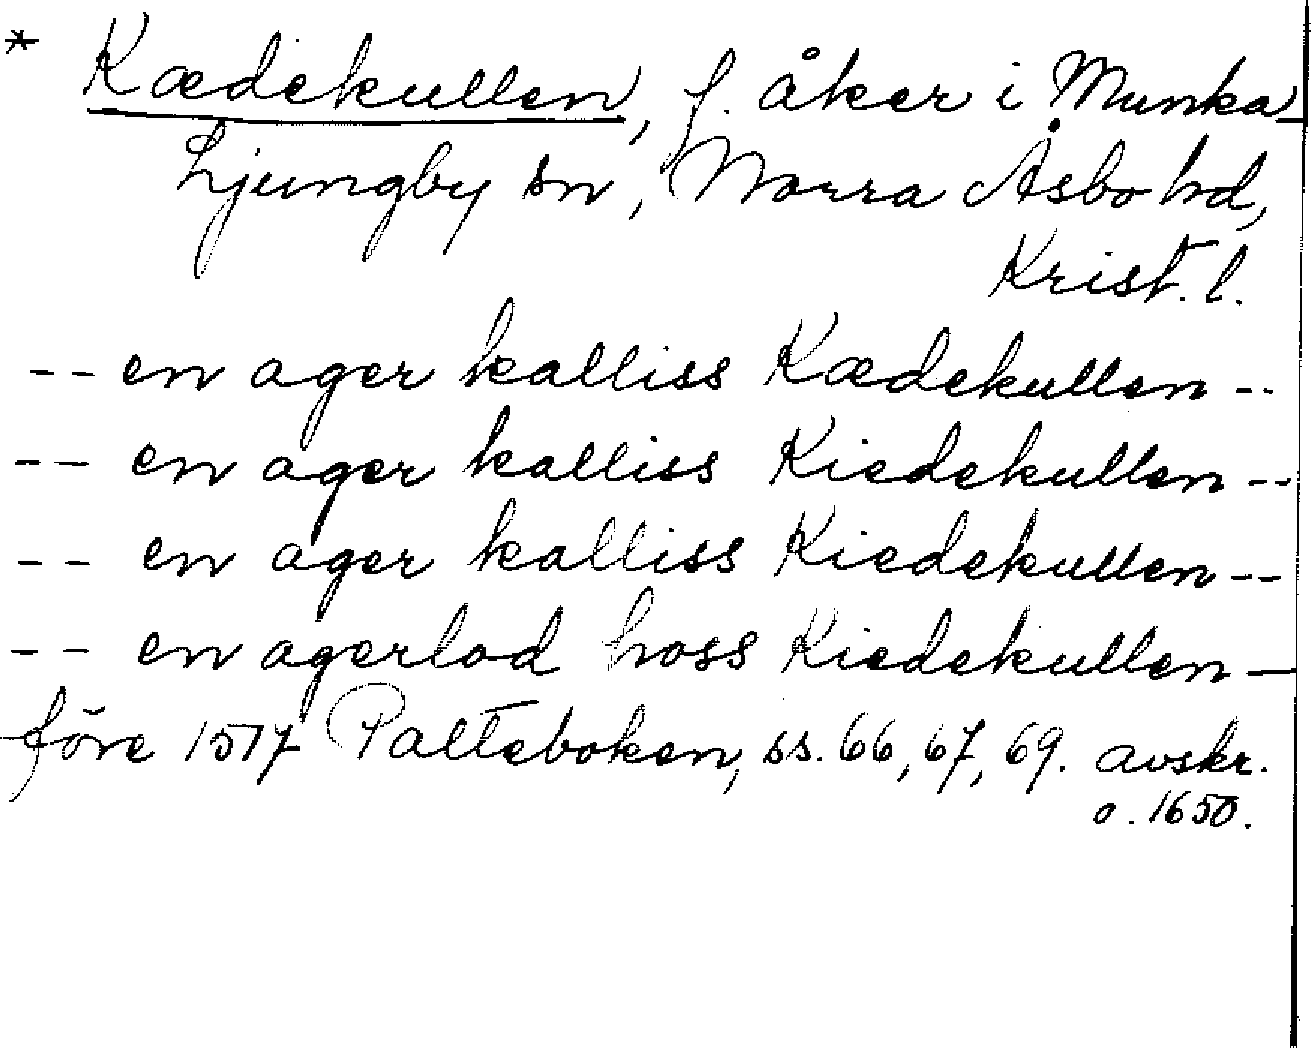 * Kædekullen, f. åker i Munka
Ljungby sn, Norra Åsbo hd,
Krist. l.
-- en ager kalliss Kædekullen --
-- en ager kalliss Kiedekullen --
-- en ager kalliss Kiedekullen --
-- en agerlod hoss Kiedekullen —
före 1517 Palteboken, ss. 66, 67, 69. avskr.
o. 1650.